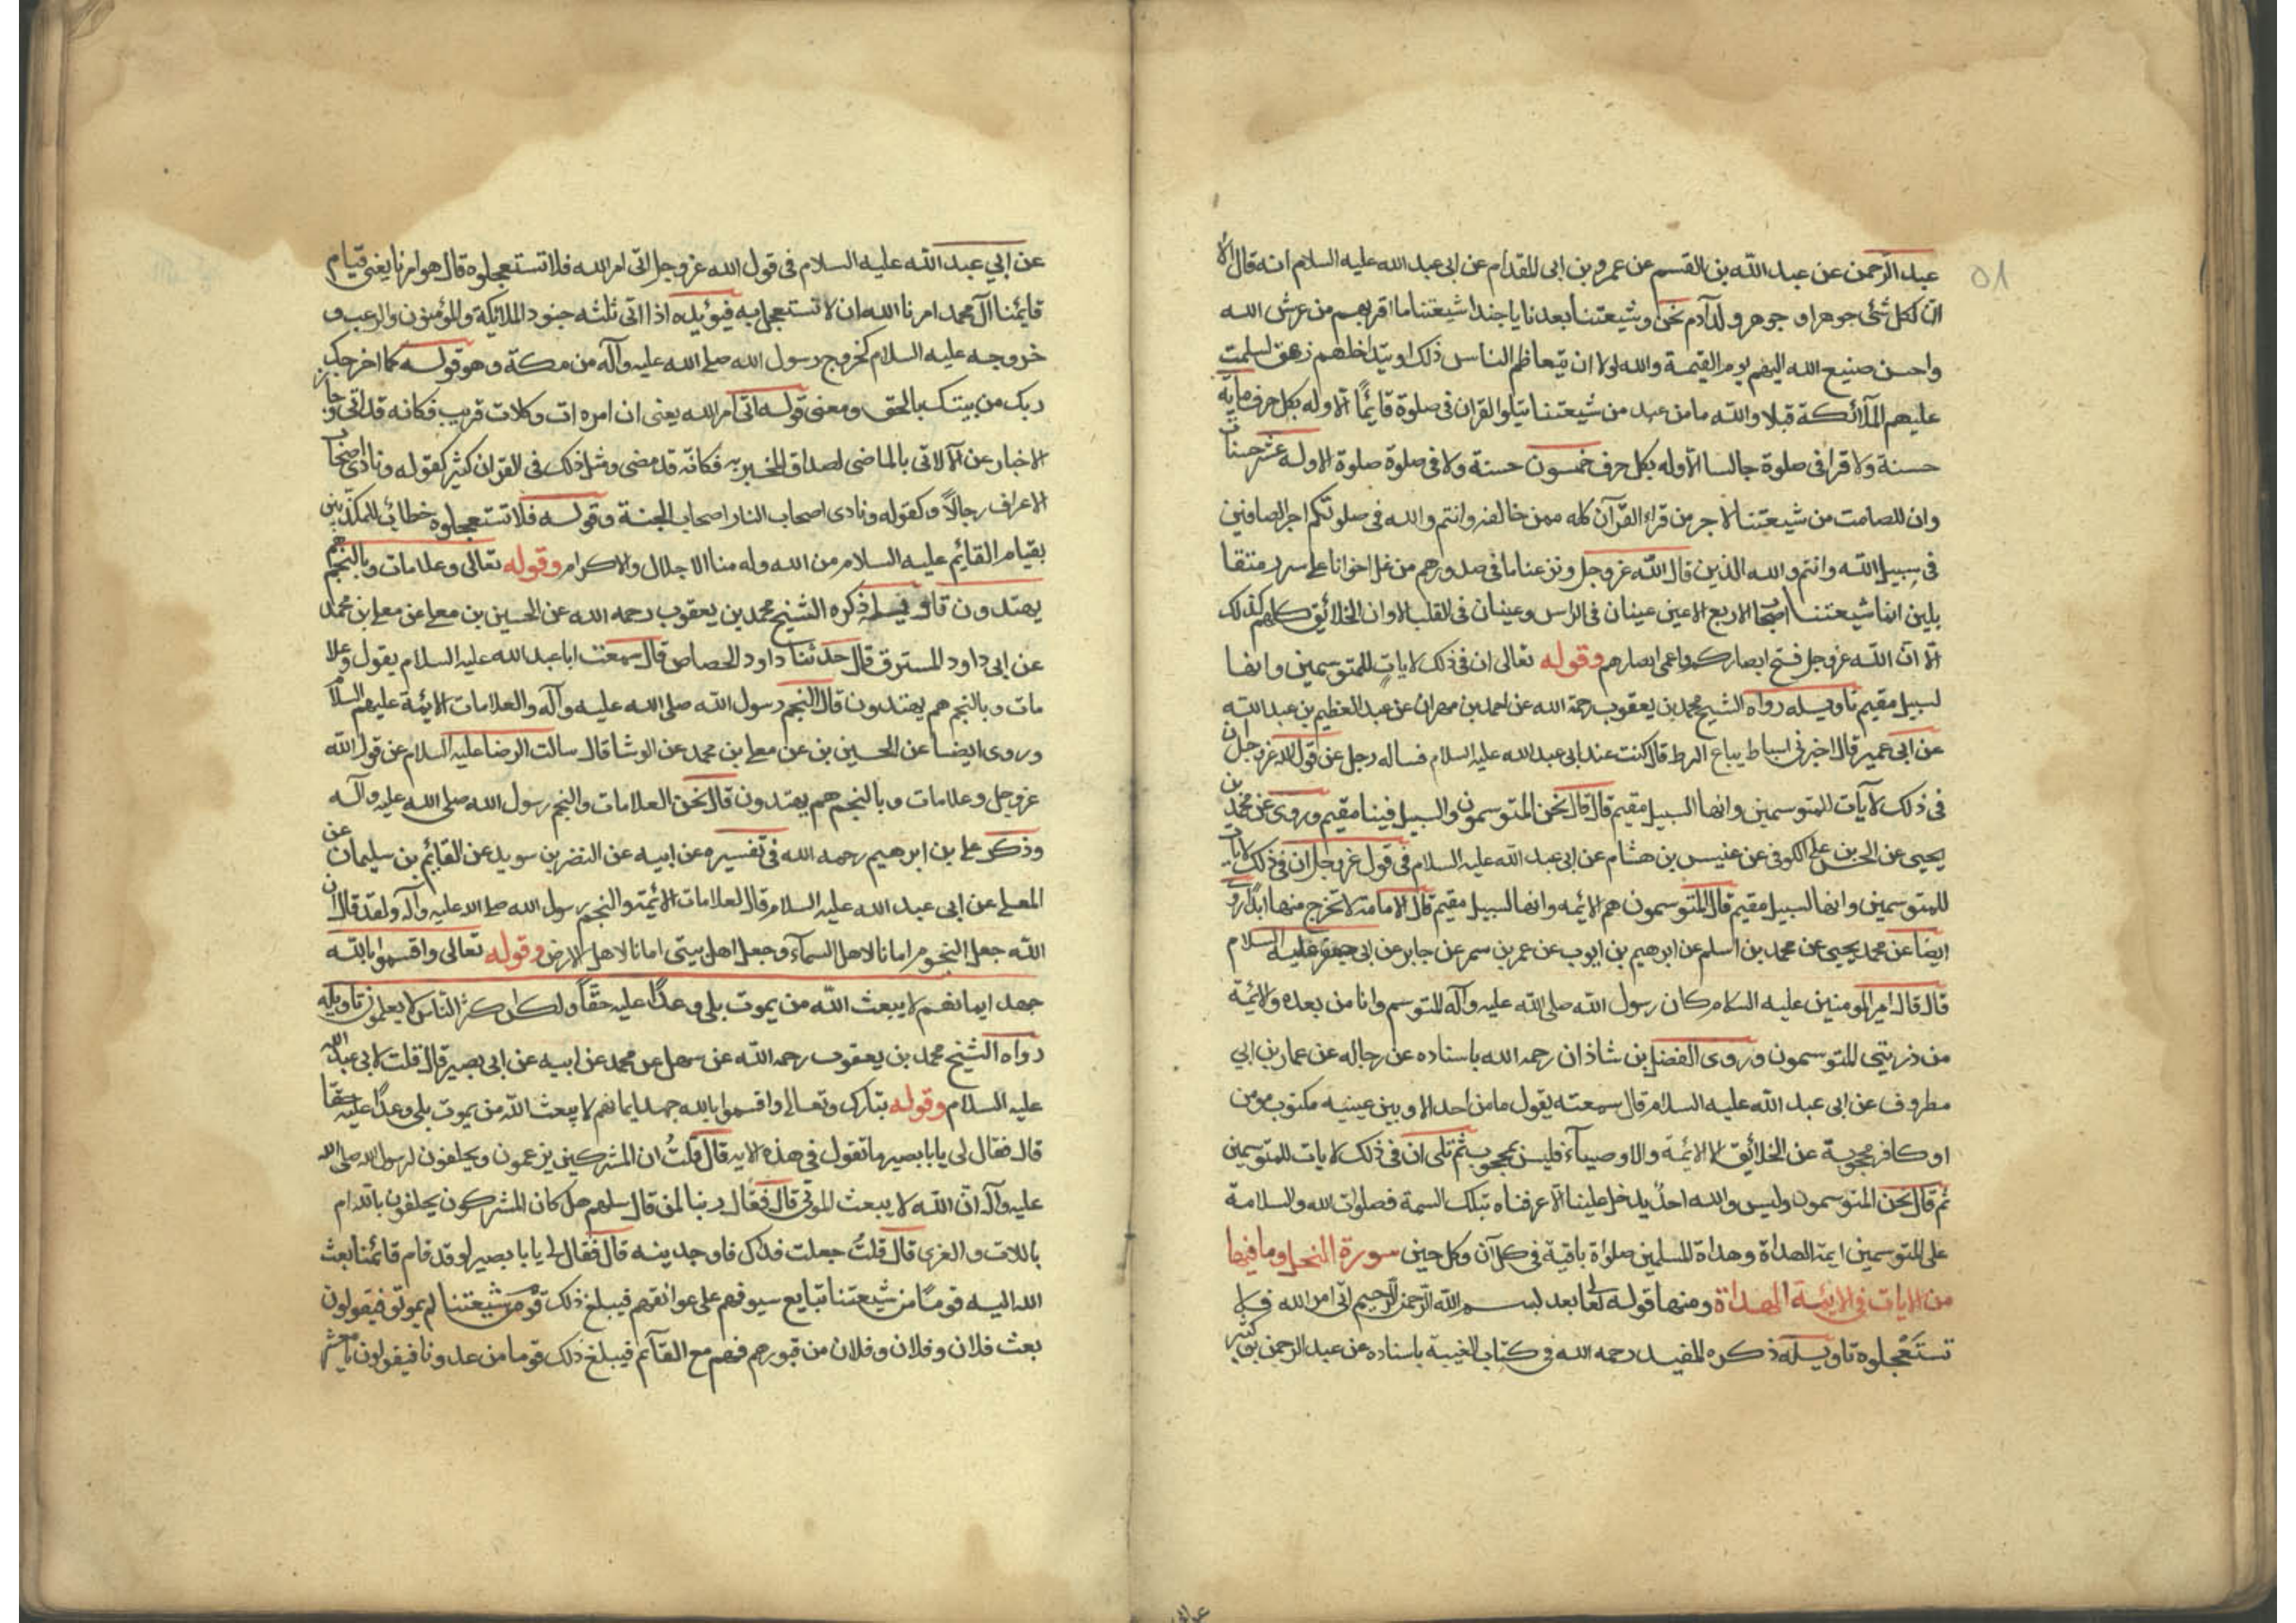 ٥٨
عبد الرحمن عن عبد الله بن القسم عن عمرو بن ابى المقدام عن ابى عبد الله عليه السلام انه قال الا
ان لكل شئ جوهرا و جوهر ولد آدم نحن وشيعتنا بعدنا يا حبذا شيعتنا ما اقربهم من عرش الله
واحسن صنيع الله اليهم يوم القيمة والله لولا ان يتعاظم الناس ذلك او يتداخلهم زهو لسلمت
عليهم الملائكة قبلا والله ما من عبد من شيعتنا يتلوا القران فى صلوة قايمًا الا وله بكل حرف ماية
حسنة ولا قرا فى صلوة جالسا الا وله بكل حرف خمسون حسنة ولا فى صلوة صلوة الا وله عشر حسنات
وان للصامت من شيعتنا لاجر من قراء القرآن كله ممن خالفه وانتم والله فى صلوتكم اجر الصافين
فى سبيل الله وانتم والله الذين قال الله عز وجل ونزعنا ما فى صدورهم من غل اخوانا على سرر متقا
بلين انما شيعتنا اصحاب الاربع الاعين عينان فى الراس وعينان فى القلب الا وان الخلائق كلهم كذلك
الا ان الله عز وجل فتح ابصاركم واعمى ابصارهم وقوله تعالى ان فى ذلك لايات للمتوسمين وانها
لبسبيل مقيم تاويله رواه الشيخ محمد بن يعقوب رحمة الله عن احمد بن مهران عن عبد العظيم بن عبد الله
عن ابى عمير قال اخبرنى اسباط بياع الزط قال كنت عند ابى عبد الله عليه السلام فساله رجل عن قول الله عز وجل ان
فى ذلك لآيات للمتوسمين وانها لبسبيل مقيم قال قال نحن المتوسمون والسبيل فينا مقيم وروى عن محمد بن
يحيى عن الحسن بن على الكوفى عن عنبس بن هشام عن ابى عبد الله عليه السلام فى قول عز وجل ان فى ذلك لايات
للمتوسمين وانها لبسبيل مقيم قال المتوسمون هم الائمه وانها لبسبيل مقيم قال الامامة لا تخرج منها ابدًا وروى
ايضا عن محمد يحيى عن محمد بن اسلم عن ابرهيم بن ايوب عن عمر بن سمر عن جابر عن ابى جعفر عليه السلام
قال قال امير المومنين عليه السلام كان رسول الله صلى الله عليه وآله المتوسم وانا من بعده والائمة
من ذريتى المتوسمون وروى الفضل بن شاذان رحمه الله باسناده عن رجاله عن عمار بن ابي
مطروف عن ابى عبد الله عليه السلام قال سمعته يقول ما من احد الا وبين عينيه مكتوب مومن
او كافر محجوبة عن الخلائق الا الائمة والاوصياء فليس بمحجوب ثم تلى ان فى ذلك لايات للمتوسمين
ثم قال نحن المتوسمون وليس والله احد يدخل علينا الا عرفناه بتلك السمة فصلوات الله والسلامة
على المتوسمين ايمة الهداة وهداة المسلمين صلواة باقية فى كل آن وكل حين سورة النحل وما فيها
من الايات فى الايئمة الهداة ومنها قوله تعالى بعد بسم الله الرحمن الرحيم اتى امر الله فلا
تستعجلوه تاويله ذكره المفيد رحمه الله فى كتاب الغيبة باسناده عن عبد الرحمن بن كثير
عن ابي عبد الله عليه السلام فى قول الله عز وجل اتى امر الله فلا تستعجلوه قال هو امرنا يعنى قيام
قايمنا آل محمد امرنا الله ان لا تستعجل به فيؤيده اذا اتى ثلثه جنود الملائكة والمؤمنون والرعب و
خروجه عليه السلام كخروج رسول الله صلى الله عليه وآله من مكة وهو قوله كما اخرجك
ربك من بيتك بالحق ومعنى قوله اتى امر الله يعنى ان امره ات وكلات قريب فكانه قد اتى وجاز
الاخبار عن الآتى بالماضى لصداق المخبر به فكانه قد مضى ومثل ذلك فى القران كثير كقوله ونادى اصحاب
الاعراف رجالاً وكقوله ونادى اصحاب النار اصحاب الجنة وقوله فلا تستعجلوه خطاب للمكذبين
بقيام القائم عليه السلام من الله وله منا الاجلال والاكرام وقوله تعالى وعلامات وبالنجم هم
يهتدون تاويله ذكره الشيخ محمد بن يعقوب رحمه الله عن الحسين بن معلى عن معلى بن محمد
عن ابى داود المسترق قال حدثنا داود الحصاص قال سمعت ابا عبد الله عليه السلام يقول وعلا
مات وبالنجم هم يهتدون قال النجم رسول الله صلى الله عليه وآله والعلامات الايئمة عليهم السلام
وروى ايضا عن الحسين بن عن معلى بن محمد عن الوشا قال سالت الرضا عليه السلام عن قول الله
عز وجل وعلامات وبالنجم هم يهتدون قال نحن العلامات والنجم رسول الله صلى الله عليه وآله
وذكر على بن ابرهيم رحمه الله فى تفسيره عن ابيه عن النضر بن سويد عن القايم بن سليمان عن
المعلى عن ابى عبد الله عليه السلام قال العلامات الائيمة والنجم رسول الله صلى الله عليه وآله ولقد قال ان
الله جعل النجوم امانا لاهل السماء وجعل اهل بيتى امانا لاهل الارض وقوله تعالى واقسموا بالله
جهد ايمانهم لا يبعث الله من يموت بلى وعدًا عليه حقًا ولكن اكثر الناس لا يعلمون تاويله
رواه الشيخ محمد بن يعقوب رحمه الله عن سهل عن محمد عن ابيه عن ابى بصير قال قلت لابى عبد الله
عليه السلام وقوله تبارك وتعالى واقسموا بالله جهد ايمانهم لا يبعث الله من يموت بلى وعدًا عليه حقًا
قال فقال لى يا با بصير ما تقول فى هذه الايه قال قلتُ ان المشركين يزعمون ويحلفون لرسول الله صلى الله
عليه وآله ان الله لا يبعث الموتى قال فقال ربنا لمن قال سلهم هل كان المشركون يحلفون بالله ام
باللات والعزى قال قلتُ جعلت فداك فاوجدينه قال فقال لى يا با بصير لو قد قام قائمنا بعث
الله اليه قومًا من شيعتنا تبايع سيوفهم على عواتقهم فيبلغ ذلك قوم من شيعتنا لم يموتو فيقولون
بعث فلان وفلان وفلان من قبورهم فهم مع القآئم فيبلغ ذلك قوما من عدونا فيقولون يا معشر